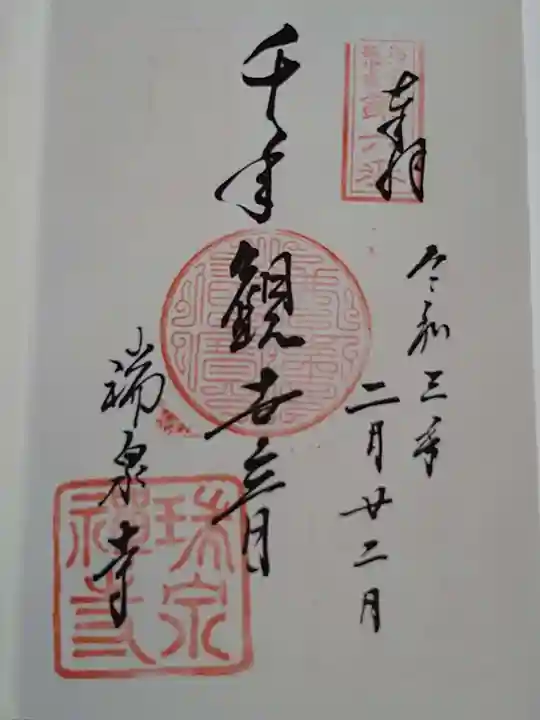 奉拝
令和三年
二月廿二日
千手観世音
瑞泉寺
瑞泉
禪寺